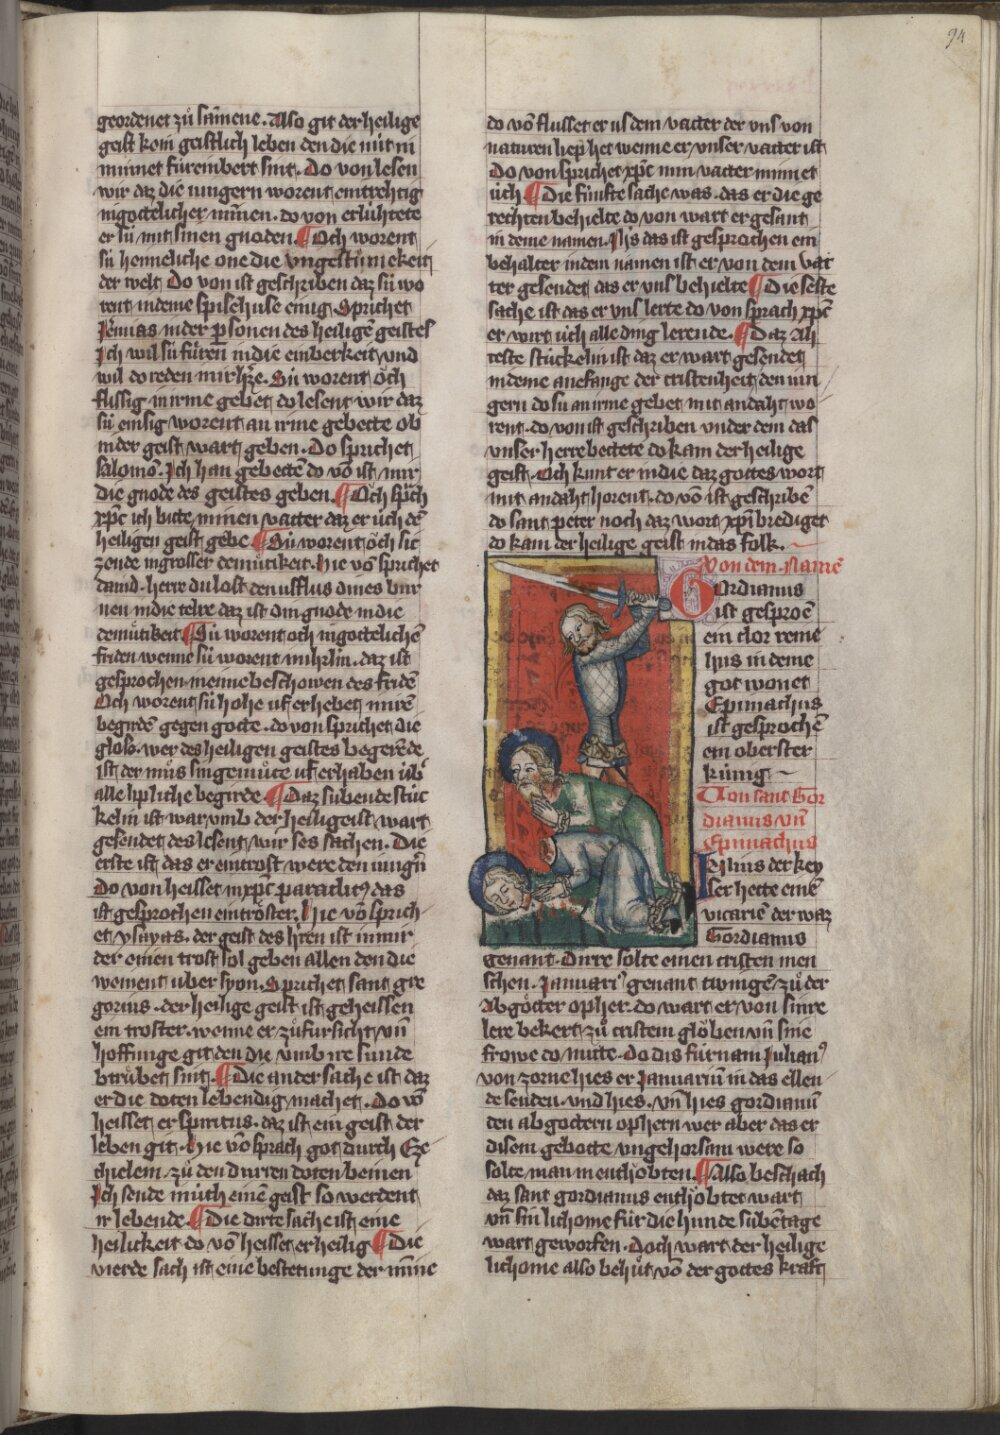 94
geordenet zů sāmene. Also git der heilige
geist kein geistlich leben den die nüt in
minnet fürembert sint. Do von lesen
wir daz die iungern worent eintrehtig
in gottelicher minnen. do von erlühtete
er sü mit sinen gnoden. ¶ Och worent
sü heimeliche one die vngestümikeit
der welt Do von ist geschriben daz sü wo
rent in deme spisehuse einig. Sprichet
in der psonen des heiligē geistes
Ich wil sü füren in die einberkeit vnd
wil do reden mir Sü worent öch
flissig in irme gebet do lesent wir daz
sü einsig worent an irme gebette ob
in der geist wart geben. Do sprichet
salomō. Ich han gebettē do vō ist mir
die gnode des geistes geben. ¶ Och sprich
xp̄c ich bitte minen vatter daz er üch dē
heiligen geist gebe ¶ Sü worent öch sit
zende in grosser demütikeit. Hie vō sprichet
dauid. herre du lost den usflus dines bur
nen in die telre daz ist din gnode in die
demütikeit ¶ Sü worent och in gottelichē
friden wenne sü worent in ihrlin. daz ist
gesprochen in enne beschowen des fridē
Och worent sü hohe uf erhebet in irē
begirdē gegen gotte. do von sprichet die
gloso. wer des heiligen geistes begerēde
ist der můs sin gemüte uf erhaben übˀ
alle liplliche begirde ¶ Daz sübende stüc
kelin ist warumb der heiligeist wart
gesendet des lesent wir ses sachen. Die
erste ist das er eintrost were den iungn̄
Do von heisset in xp̄c paraclitꝰ das
ist gesprochen ein tröster. Hie vō sprich
et ysayas. der geist des h̄ren ist in mir
der einen trost sol geben allen den die
weinent uber syon. Sprichet sant gre
gorius. der heilige geist ist geheissen
ein troster. wenne er zůfursicht vn̄
hoffunge git den die vmb ire sunde
btrübet sint. ¶ Die ander sache ist daz
er die doten lebendig machet. Do vō
heisset er spiritus. daz ist ein geist der
leben git. Hie vō sprach got durch Eze
chielem. zü den durren doten beinen
Ich sende in üch einē geist so werdent
ir lebende. ¶ Die dirte sache ist eine
heilickeit do vō heisset er heilig ¶ Die
vierde sach ist eine bestetunge der minne
do vō flusset er us dem vatter der vns von
naturen liep het wenne er vnser vatter ist
Do von sprichet xp̄c min vatter minnet
üch ¶ Die fünfte sache was. das er die ge
rechten behielte do von wart er gesant
in deme namen. Jhs das ist gesprochen ein
behalter in dem namen ist er von dem vat
ter gesendet das er vns behielte ¶ Die seste
sache ist das er vns lerte do von sprach xp̄c
er wirt üch alle ding lerende. ¶ Daz ah
teste stückelin ist daz er wart gesendet
in deme anefange der cristenheit den iun
gern do sü an irme gebet mit andaht wo
rent. do von ist geschriben vnder dem das
vnser herre bettete do kam der heilige
geist. Och kunt er in die daz gottes wort
mit andaht horent. do vō ist geschribē
do sant peter noch daz wort xp̄i brediget
do kam der heilige geist in das folk.
Von dem Namē
Gordianus
ist gesproē
ein clor reme
hus in deme
got wonet
Epimachus
ist gesprochē
ein oberster
künig
Von sant Gor
dianus vn̄
Epimachus
Julius der key
ser hette einē
vicariē der waz
Gordianus
genant. Dirre solte einen cristen men
schen. Januariꝰ genant twingē zů der
abgötter opher. do wart er von sinre
lere bekert zü cristem glöben vn̄ sine
frowe do mitte. Do dis fürnam Julianꝰ
von zorne hies er Januariū in das ellen
de senden. vnd hies. vn̄ hies gordianū
den abgottern ophern wer aber das er
disem gebotte vngehorsam were so
solte man in enthobten. ¶ Also beschach
daz sant gordianus enthobtet wart
vn̄ sin lichome für die hunde sübentage
wart geworfen. Doch wart der heilige
lichome also behüt vō der gottes kraft